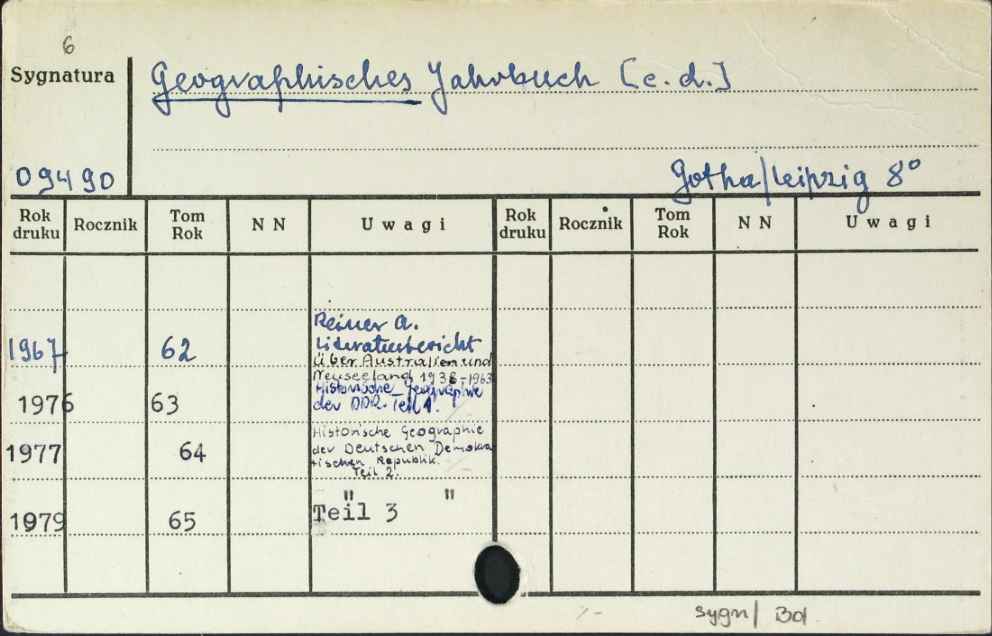 6
Sygnatura
Geographisches Jahrbuch [c.d.]
09490
Gotha/Leipzig 8°
Rok druku Rocznik Tom Rok N N U w a g i Rok druku Rocznik Tom Rok N N U w a g i
Reiner A.
Literaturbericht
1967 62
über Australien und
Neuseeland 1938-1963
Historische Geographie
1976 63 der DDR. Teil 1.
Historische Geographie
1977 64 der Deutschen Demokra
tischen Republik.
Teil 2.
" "
1979 65 Teil 3
sygn/ Bd.